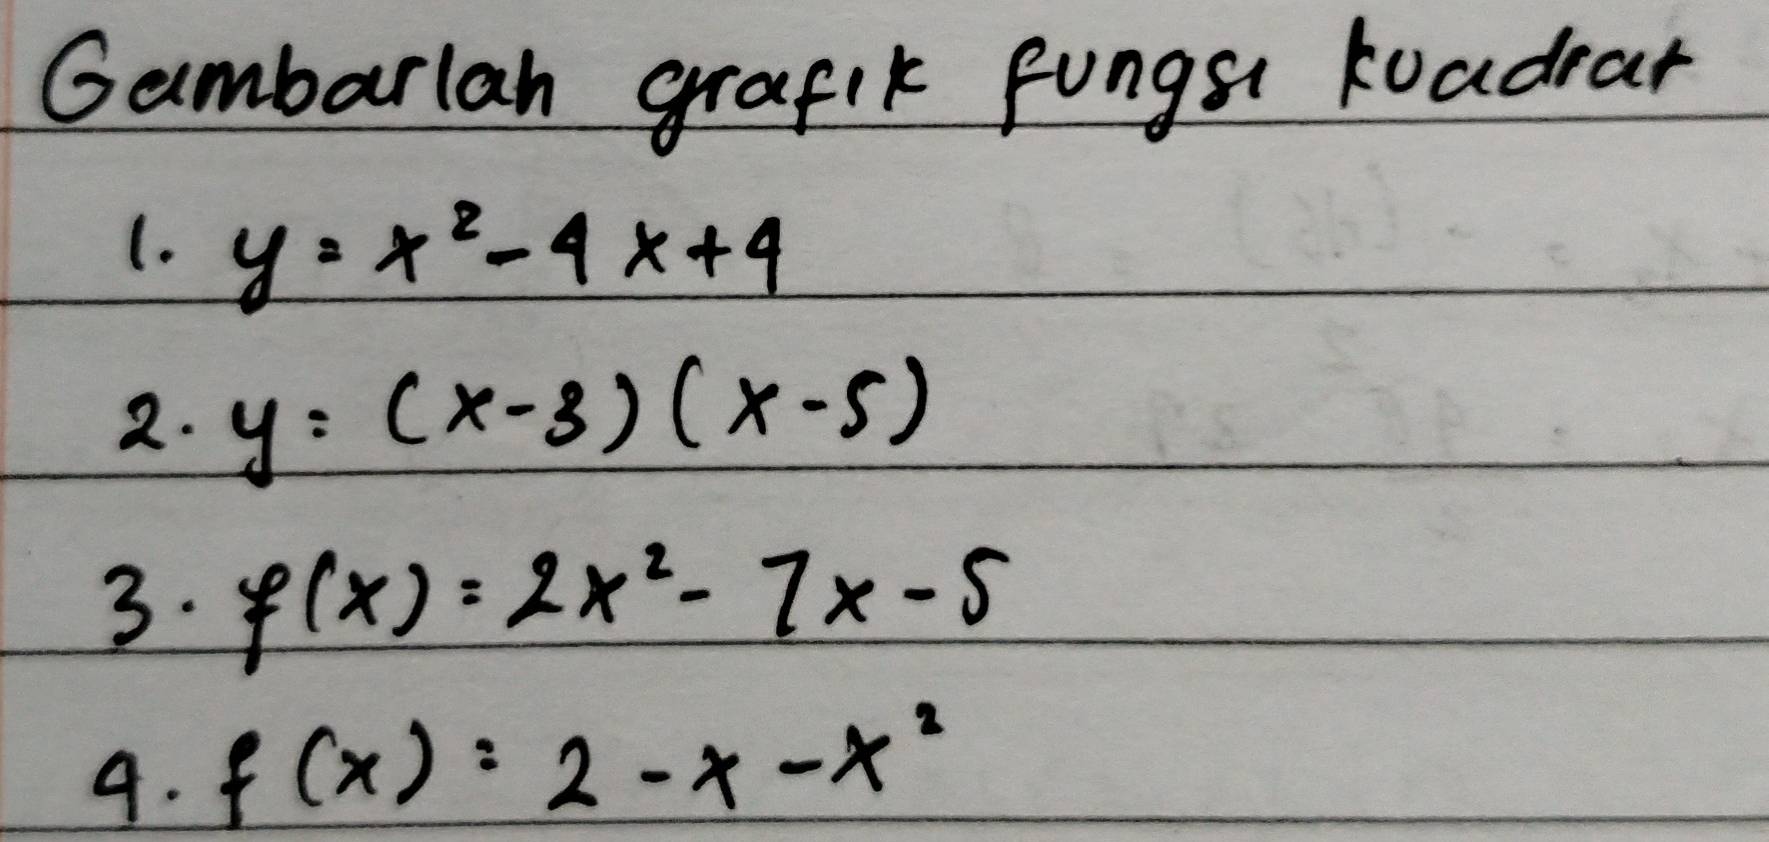 Gambarlah grafik fungsi kuadrat
1. y = x² - 4x + 4
2. y = (x-3)(x-5)
3. f(x) = 2x² - 7x - 5
4. f(x) = 2 - x - x²